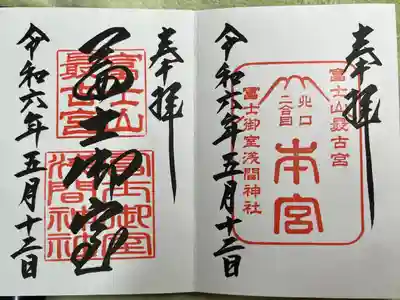 奉拝
富士山最古宮
北口
二合目
本宮
富士御室浅間神社
令和六年五月十二日
奉拝
富士御室
富士山
最古宮
富士御室
浅間神社
令和六年五月十二日